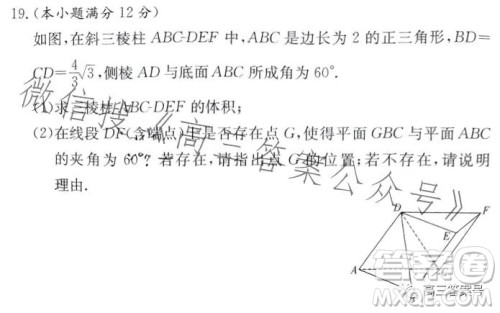 19.(本小题满分12分)
如图,在斜三棱柱ABC-DEF中,ABC是边长为2的正三角形,BD=
CD=4/3√3,侧棱AD与底面ABC所成角为60°.
(1)求三棱柱ABC-DEF的体积;
(2)在线段DF(含端点)上是否存在点G,使得平面GBC与平面ABC
的夹角为60°?若存在,请指出点G的位置;若不存在,请说明
理由.
微信搜《高三答案公众号》
D
F
E
A
B
答案圈
高三答案号